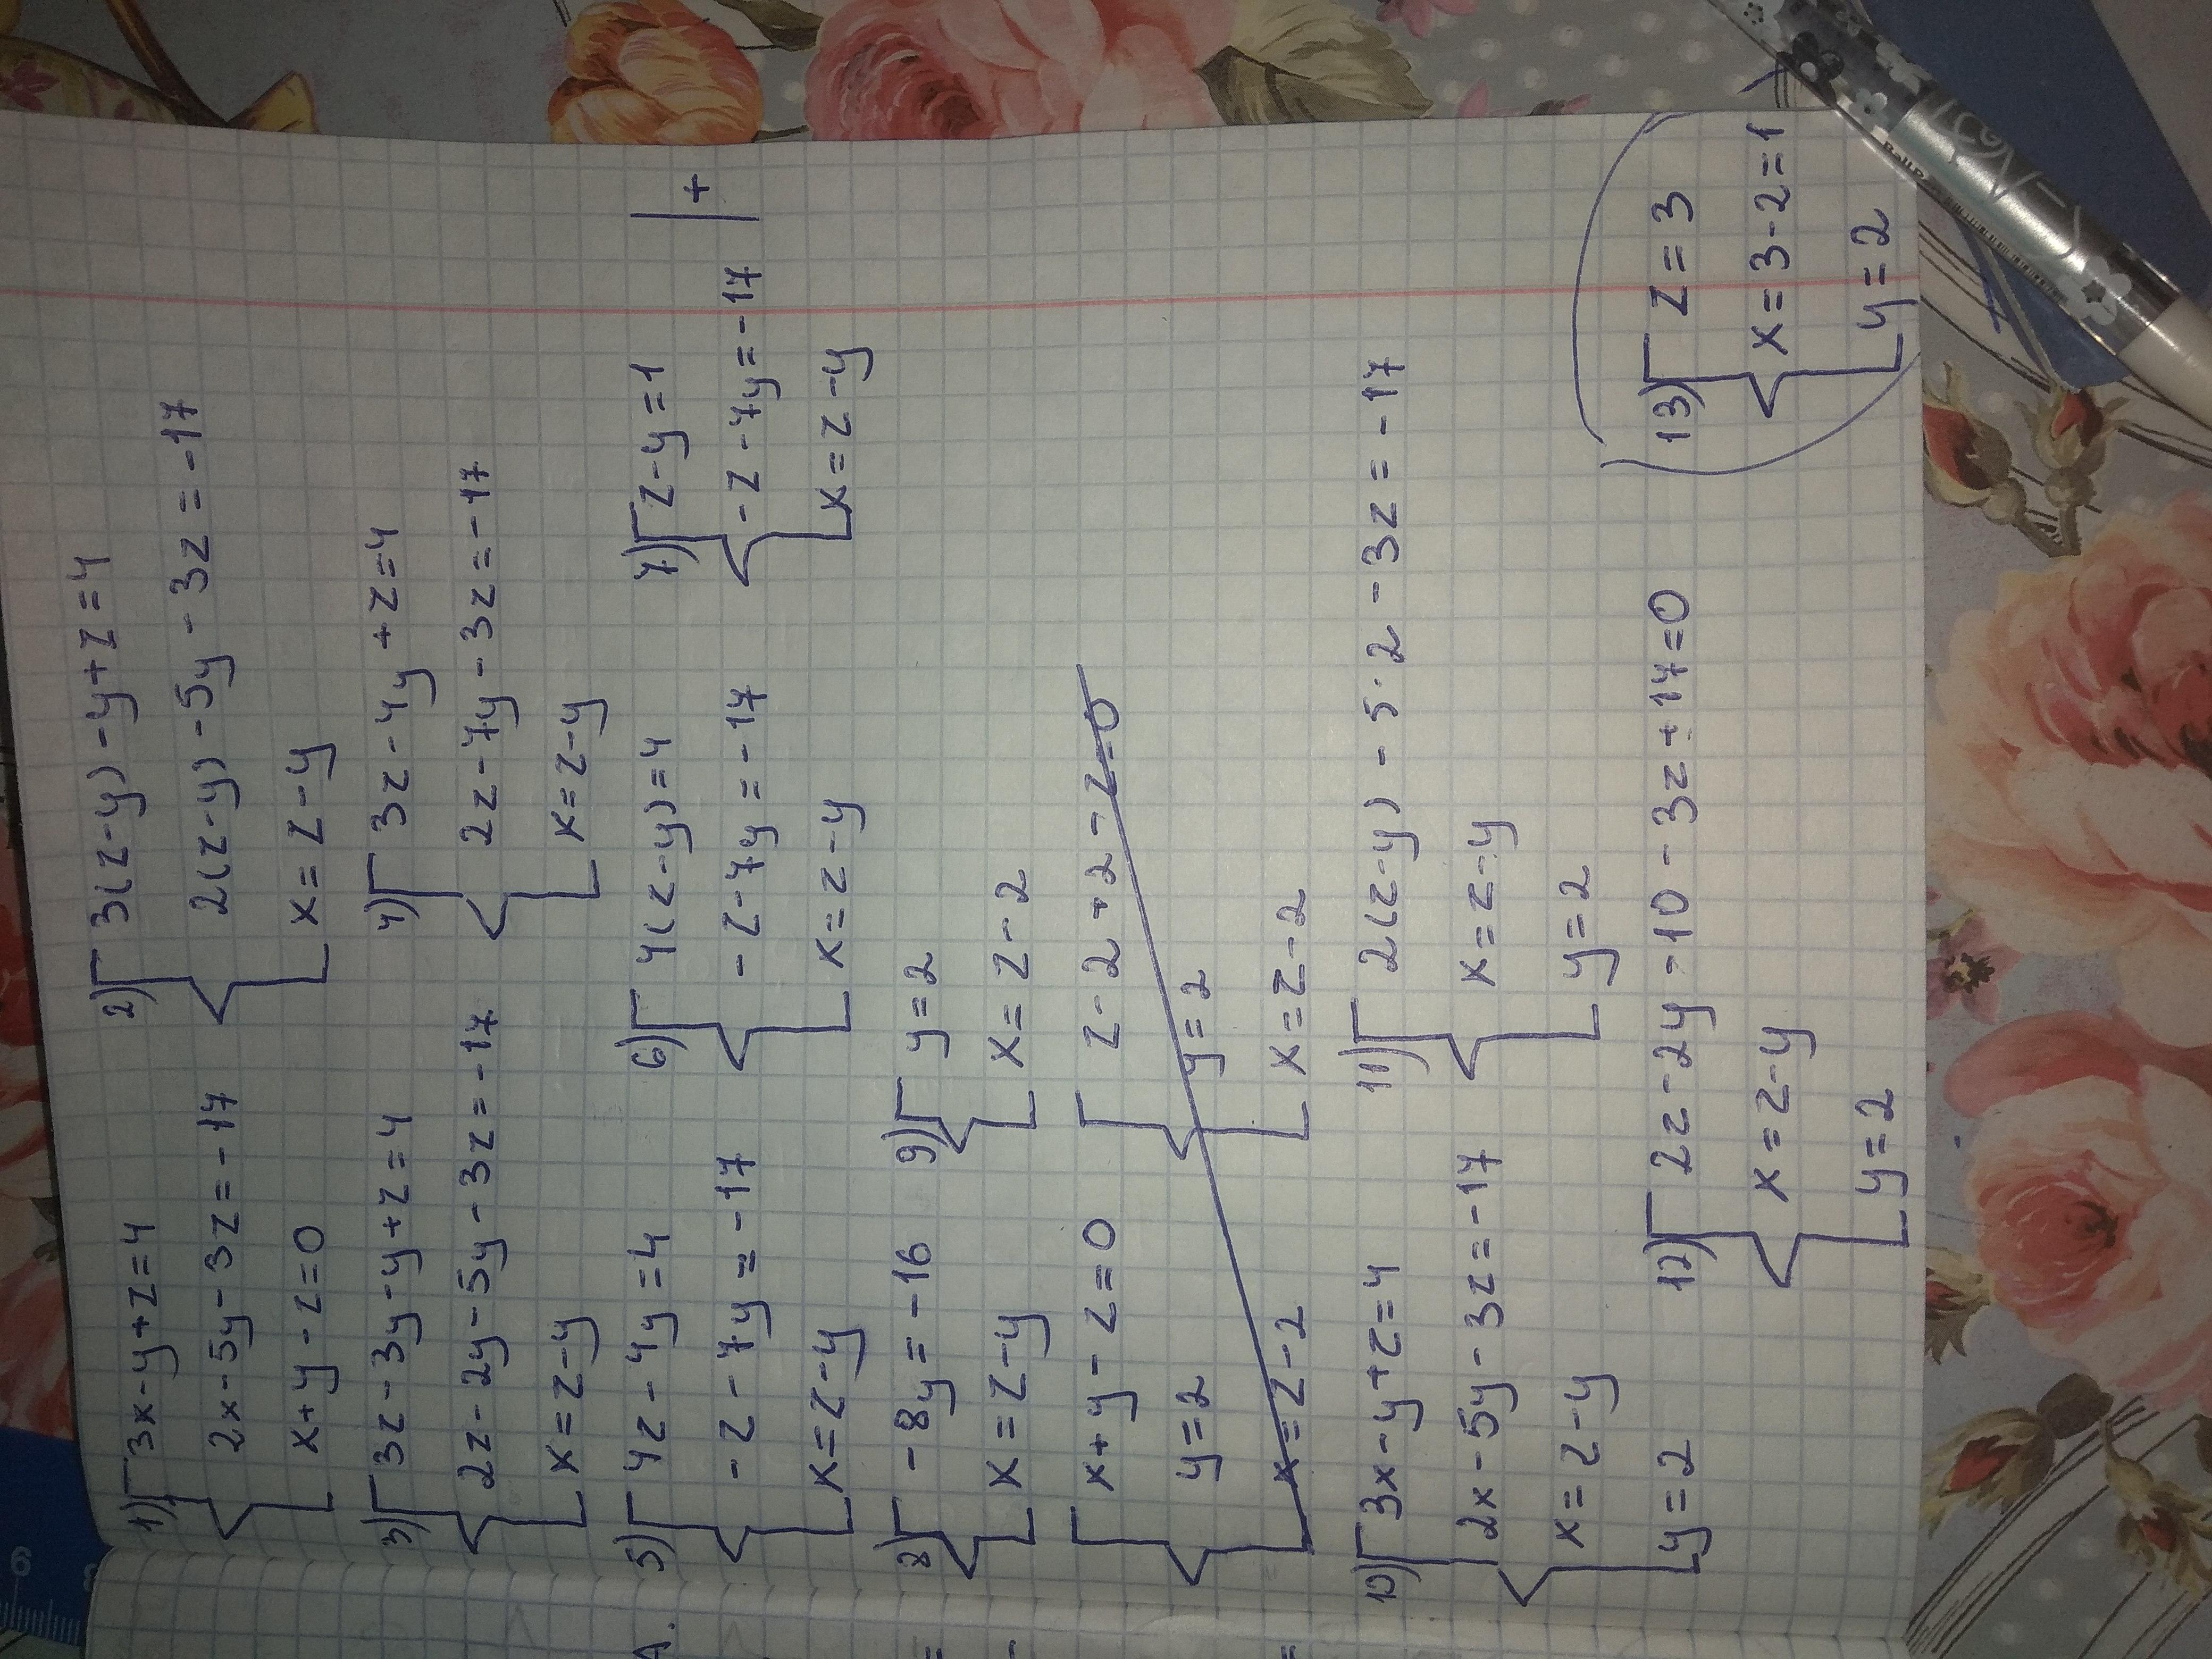 1) 3x-y+z=4
2x-5y-3z=-17
x+y-z=0
2) 3(z-y)-y+z=4
2(z-y)-5y-3z=-17
x=z-y
3) 3z-3y-y+z=4
2z-2y-5y-3z=-17
x=z-y
4) 3z-4y+z=4
2z-7y-3z=-17
x=z-y
5) 4z-4y=4
-z-7y=-17
x=z-y
6) 4(z-y)=4
-z-7y=-17
x=z-y
7) z-y=1
-z-7y=-17 | +
x=z-y
8) -8y=-16
x=z-y
9) y=2
x=z-2
x+y-z=0
y=2
x=z-2
z-2+2-z=0
y=2
x=z-2
10) 3x-y+z=4
2x-5y-3z=-17
x=z-y
y=2
11) 2(z-y)-5·2-3z=-17
x=z-y
y=2
12) 2z-2y-10-3z+17=0
x=z-y
y=2
13) z=3
x=3-2=1
y=2